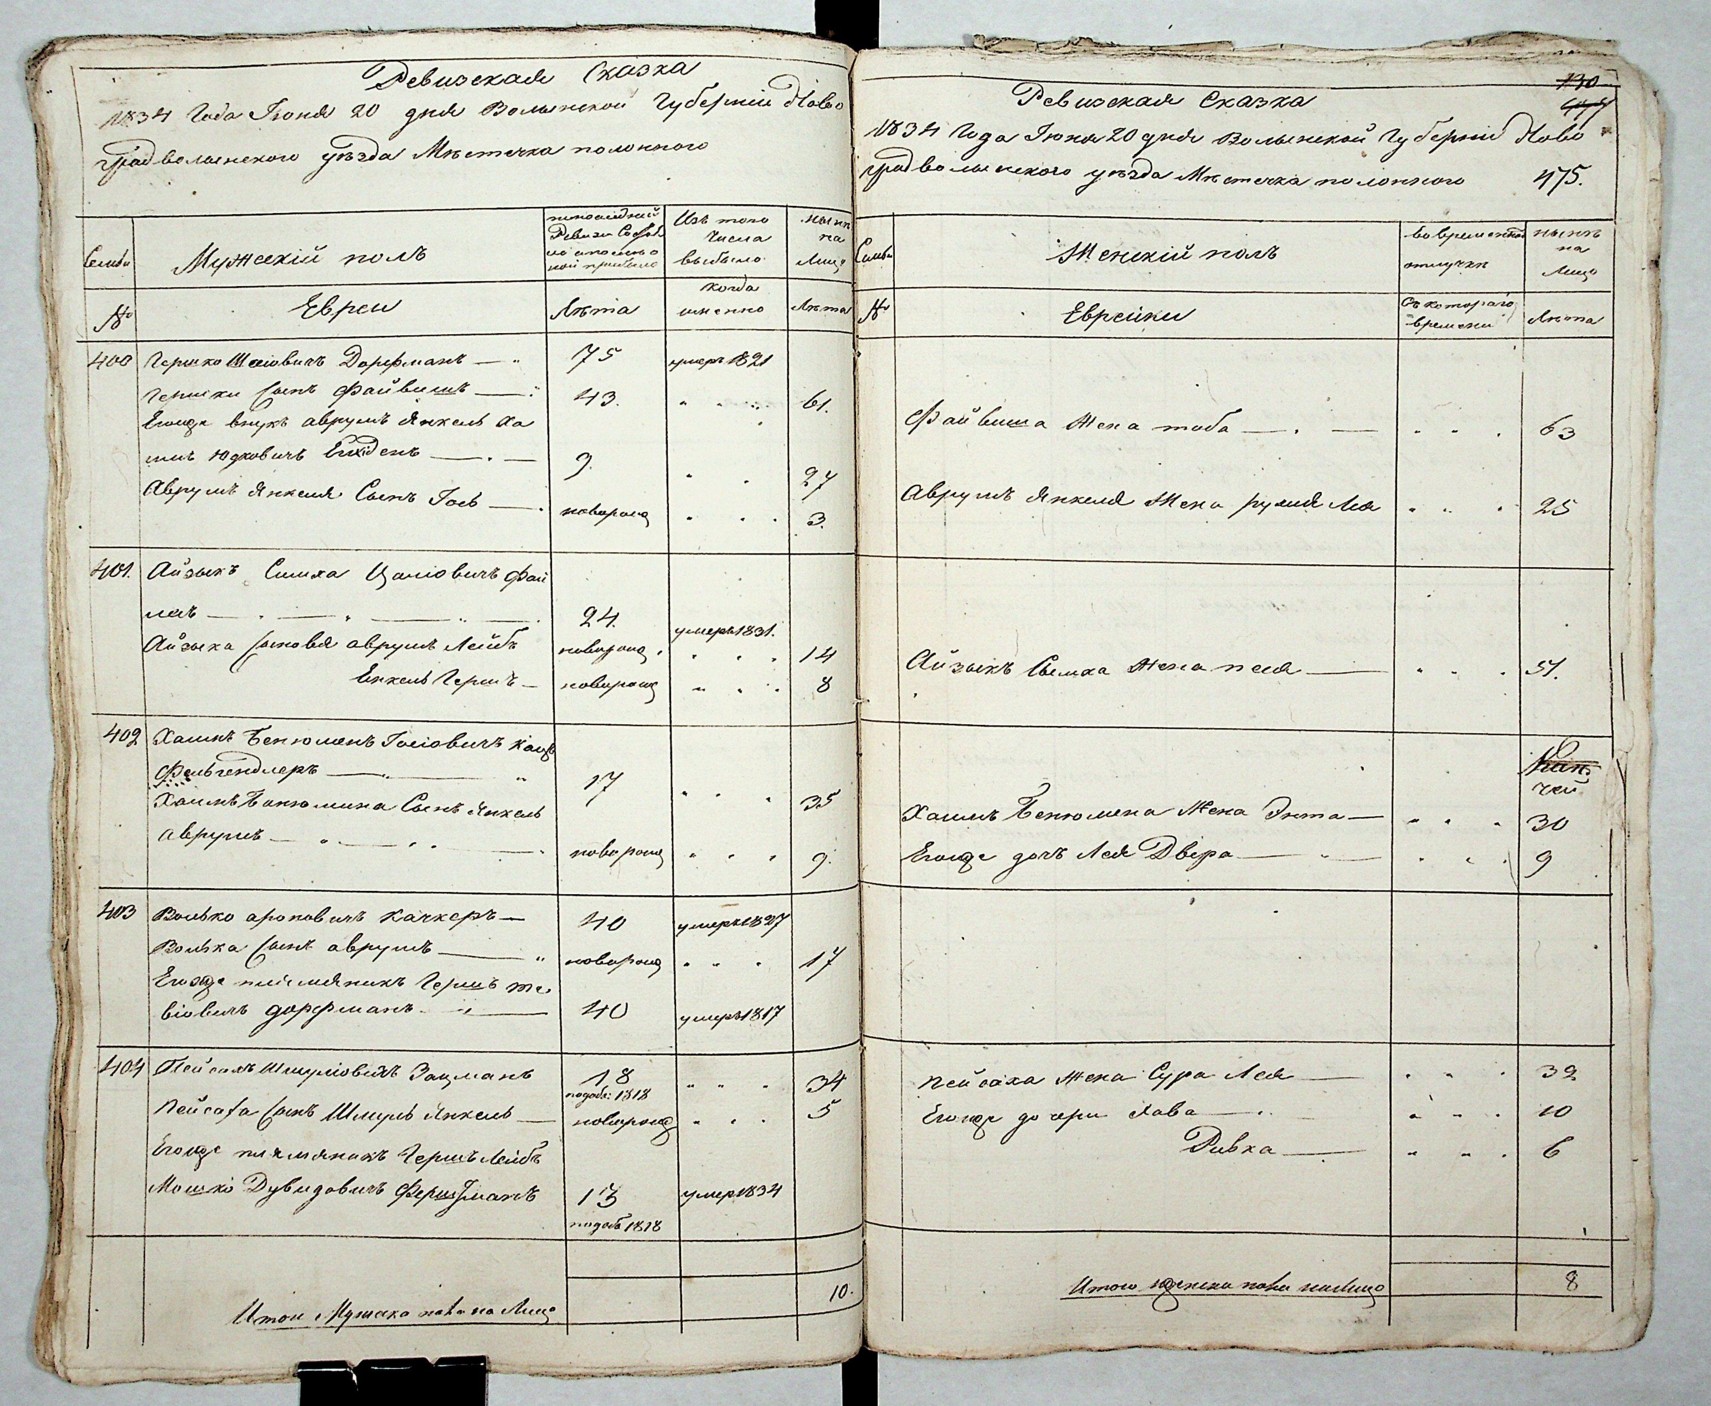 Ревизская Сказка
1834 Года Іюня 20 дня Волынской Губерніи Ново
градволынского уѣзда Мѣстечка полонного
Семьи
Мужескій полъ
Изъ того
числа
выбыло
нынѣ
на
Лицо
№
Евреи
Лѣта
когда
именно
Лѣта
400 Гершко Дорфманъ 75 умеръ 1821
Гершки Сынъ Файвишъ 43. 61.
Егожде внукъ аврумъ Янкель Ха
имъ Юдковичъ 9. 27
Аврумъ Янкеля Сынъ Іось новорожд 3.
401. Айзыкъ Симха Фай
24. умеръ 1831.
Айзыка Сыновя аврумъ Лейбъ новорожд. 14
Янкель Гершъ новорожд 8
402 Хаимъ Бенюменъ Іосіовичъ
Фельгендлеръ 17 35
Хаимъ Бенюмина Сынъ Янкель
аврумъ новорожд 9.
403 Волько ароновичъ Качкеръ 40 умеръ 1827
Волька Сынъ аврумъ новорожд 17
Егожде племяникъ Гершъ те
віовичъ дорфманъ 40 умеръ 1817
404 Пейсахъ Шмуліовичъ Зацманъ 18 34
1818
Пейсаха Сынъ Шмуль Янкель новорожд 5
Егожде племяникъ Гершъ Лейбъ
Мошко Дувидовичъ 13 умер 1834
1818
Итого Мужеска пола на Лицо 10.
130
Ревизская Сказка
1834 Года Іюня 20 дня Волынской Губерніи Ново
градволынского уѣзда Мѣстечка полонного 475.
Семьи
Женскій полъ
Во временной
отлучки
нынѣ
на
Лицо
№
Еврейки
Съ которого
времени
Лѣта
Файвиша Жена тоба 63
Аврумъ Янкеля Жена рухля Лея 25
Айзыкъ Сымха Жена песя 51.
Хаимъ Бенюмена Жена Энта 30
Егожде дочъ Лея Двера 9
Пейсаха Жена Сура Лея 32
Егожде дочери Хава 10
Ривка 6
Итого женска пола налицо 8